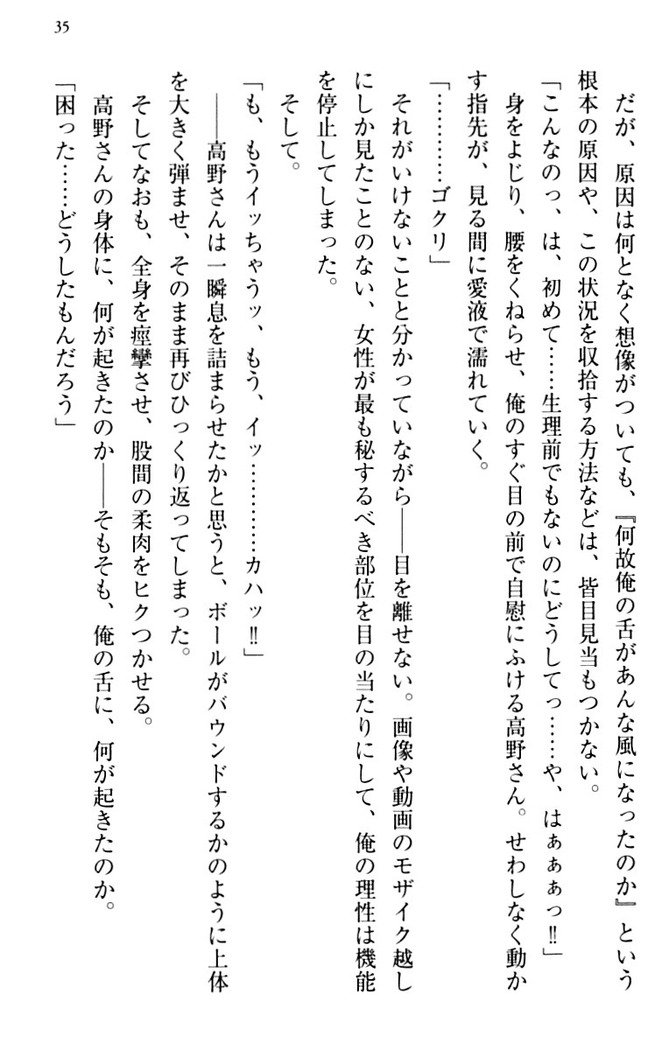 35
だが、原因は何となく想像がついても、『何故俺の舌があんな風になったのか』という
根本の原因や、この状況を収拾する方法などは、皆目見当もつかない。
「こんなのっ、は、初めて……生理前でもないのにどうしてっ……や、はぁぁぁっ‼」
身をよじり、腰をくねらせ、俺のすぐ目の前で自慰にふける高野さん。せわしなく動か
す指先が、見る間に愛液で濡れていく。
「…………ゴクリ」
それがいけないことと分かっていながら――目を離せない。画像や動画のモザイク越し
にしか見たことのない、女性が最も秘するべき部位を目の当たりにして、俺の理性は機能
を停止してしまった。
そして。
「も、もうイッちゃうッ、もう、イッ…………カハッ‼」
――高野さんは一瞬息を詰まらせたかと思うと、ボールがバウンドするかのように上体
を大きく弾ませ、そのまま再びひっくり返ってしまった。
そしてなおも、全身を痙攣させ、股間の柔肉をヒクつかせる。
高野さんの身体に、何が起きたのか――そもそも、俺の舌に、何が起きたのか。
「困った……どうしたもんだろう」